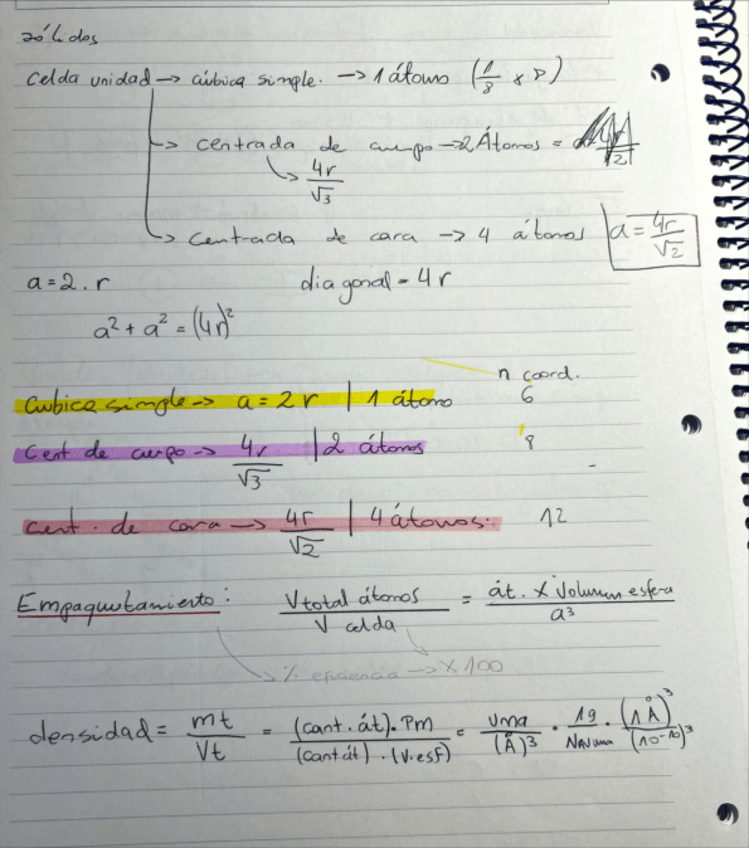 sólidos
Celda unidad → cúbica simple. → 1 átomo (1/8 x 8)
→ centrada de cuerpo → 2 Átomos =
4r/√3
→ Centrada de cara → 4 átomos a = 4r/√2
a = 2 . r diagonal = 4r
a² + a² = (4r)²
n coord.
Cubica simple → a = 2r | 1 átomo 6
Cent de cuerpo → 4r/√3 | 2 átomos 8
cent. de cara → 4r/√2 | 4 átomos. 12
Empaquetamiento: V total átomos / V celda = át. x Volumen esfera / a³
% eficiencia → x 100
densidad = mt / Vt = (cant. át). Pm / (cant át) . (V.esf) = uma / (Å)³ . 1g / NAv uma . (1 Å)³ / (10⁻¹⁰)³